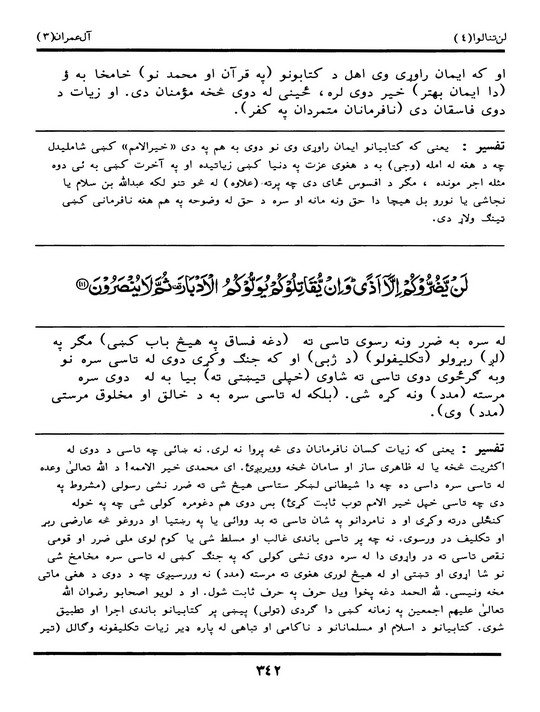 لن تنالوا(٤) آل عمران(٣)
او که ایمان راوړی وی اهل د کتابونو (په قرآن او محمد نو) خامخا به ؤ
(دا ایمان بهتر) خیر دوی لره، ځینی له دوی څخه مؤمنان دی. او زیات د
دوی فاسقان دی (نافرمانان متمردان په کفر).
تفسیر : یعنی که کتابیانو ایمان راوړی وی نو دوی به هم په دی «خیرالامم» کښی شاملیدل
چه د هغه له امله (وجی) به د هغوی عزت په دنیا کښی زیاتیده او په آخرت کښی به ئی دوه
مثله اجر مونده ، مگر د افسوس ځای دی چه پرته (علاوه) له څو تنو لکه عبدالله بن سلام یا
نجاشی یا نورو بل هیچا دا حق ونه مانه او سره د حق له وضوحه په هم هغه نافرمانی کښی
تینگ ولاړ دی.
لَنْ يَّضُرُّوْكُمْ اِلَّآ اَذًى ۭ وَاِنْ يُّقَاتِلُوْكُمْ يُوَلُّوْكُمُ الْاَدْبَارَ ۣ ثُمَّ لَا يُنْصَرُوْنَ ۝۱۱۱
له سره به ضرر ونه رسوی تاسی ته (دغه فساق په هیڅ باب کښی) مگر په
(لږ) ربړولو (تکلیفولو) (د ژبی) او که جنگ وکړی دوی له تاسی سره نو
وبه گرځوی دوی تاسی ته شاوی (خپلی تیښتی ته) بیا به له دوی سره
مرسته (مدد) ونه کړه شی. (بلکه له تاسی سره به د خالق او مخلوق مرستی
(مدد) وی).
تفسیر : یعنی که زیات کسان نافرمانان دی څه پروا نه لری. نه ښائی چه تاسی د دوی له
اکثریت څخه یا له ظاهری ساز او سامان څخه وویریږئ. ای محمدی خیر الامم! د الله تعالیٰ وعده
له تاسی سره داسی ده چه دا شیطانی لښکر ستاسی هیڅ شی ته ضرر نشی رسولی (مشروط په
دی چه تاسی خپل خیر الامم توب ثابت کړئ) بس دوی هم دغومره کولی شی چه په خوله
کنځلی درته وکړی او د نامردانو په شان تاسی ته بد ووائی یا په رښتیا او دروغو څه عارضی ربړ
او تکلیف در ورسوی. نه چه پر تاسی باندی غالب او مسلط شی یا کوم لوی ملی ضرر او قومی
نقص تاسی ته در واړوی دا له سره دوی نشی کولی که په جنگ کښی له تاسی سره مخامخ شی
نو شا اړوی او تښتی او له هیڅ لوری هغوی ته مرسته (مدد) نه وررسیږی چه د دوی د هغی ماتی
مخه ونیسی. لله الحمد دغه پخوا ویل حرف په حرف ثابت شول. او د لویو اصحابو رضوان الله
تعالیٰ علیهم اجمعین په زمانه کښی دا گردی (تولی) پیښی پر کتابیانو باندی اجرا او تطبیق
شوی. کتابیانو د اسلام او مسلمانانو د ناکامی او تباهی له پاره ډیر زیات تکلیفونه وگالل (تیر
٣٤٢